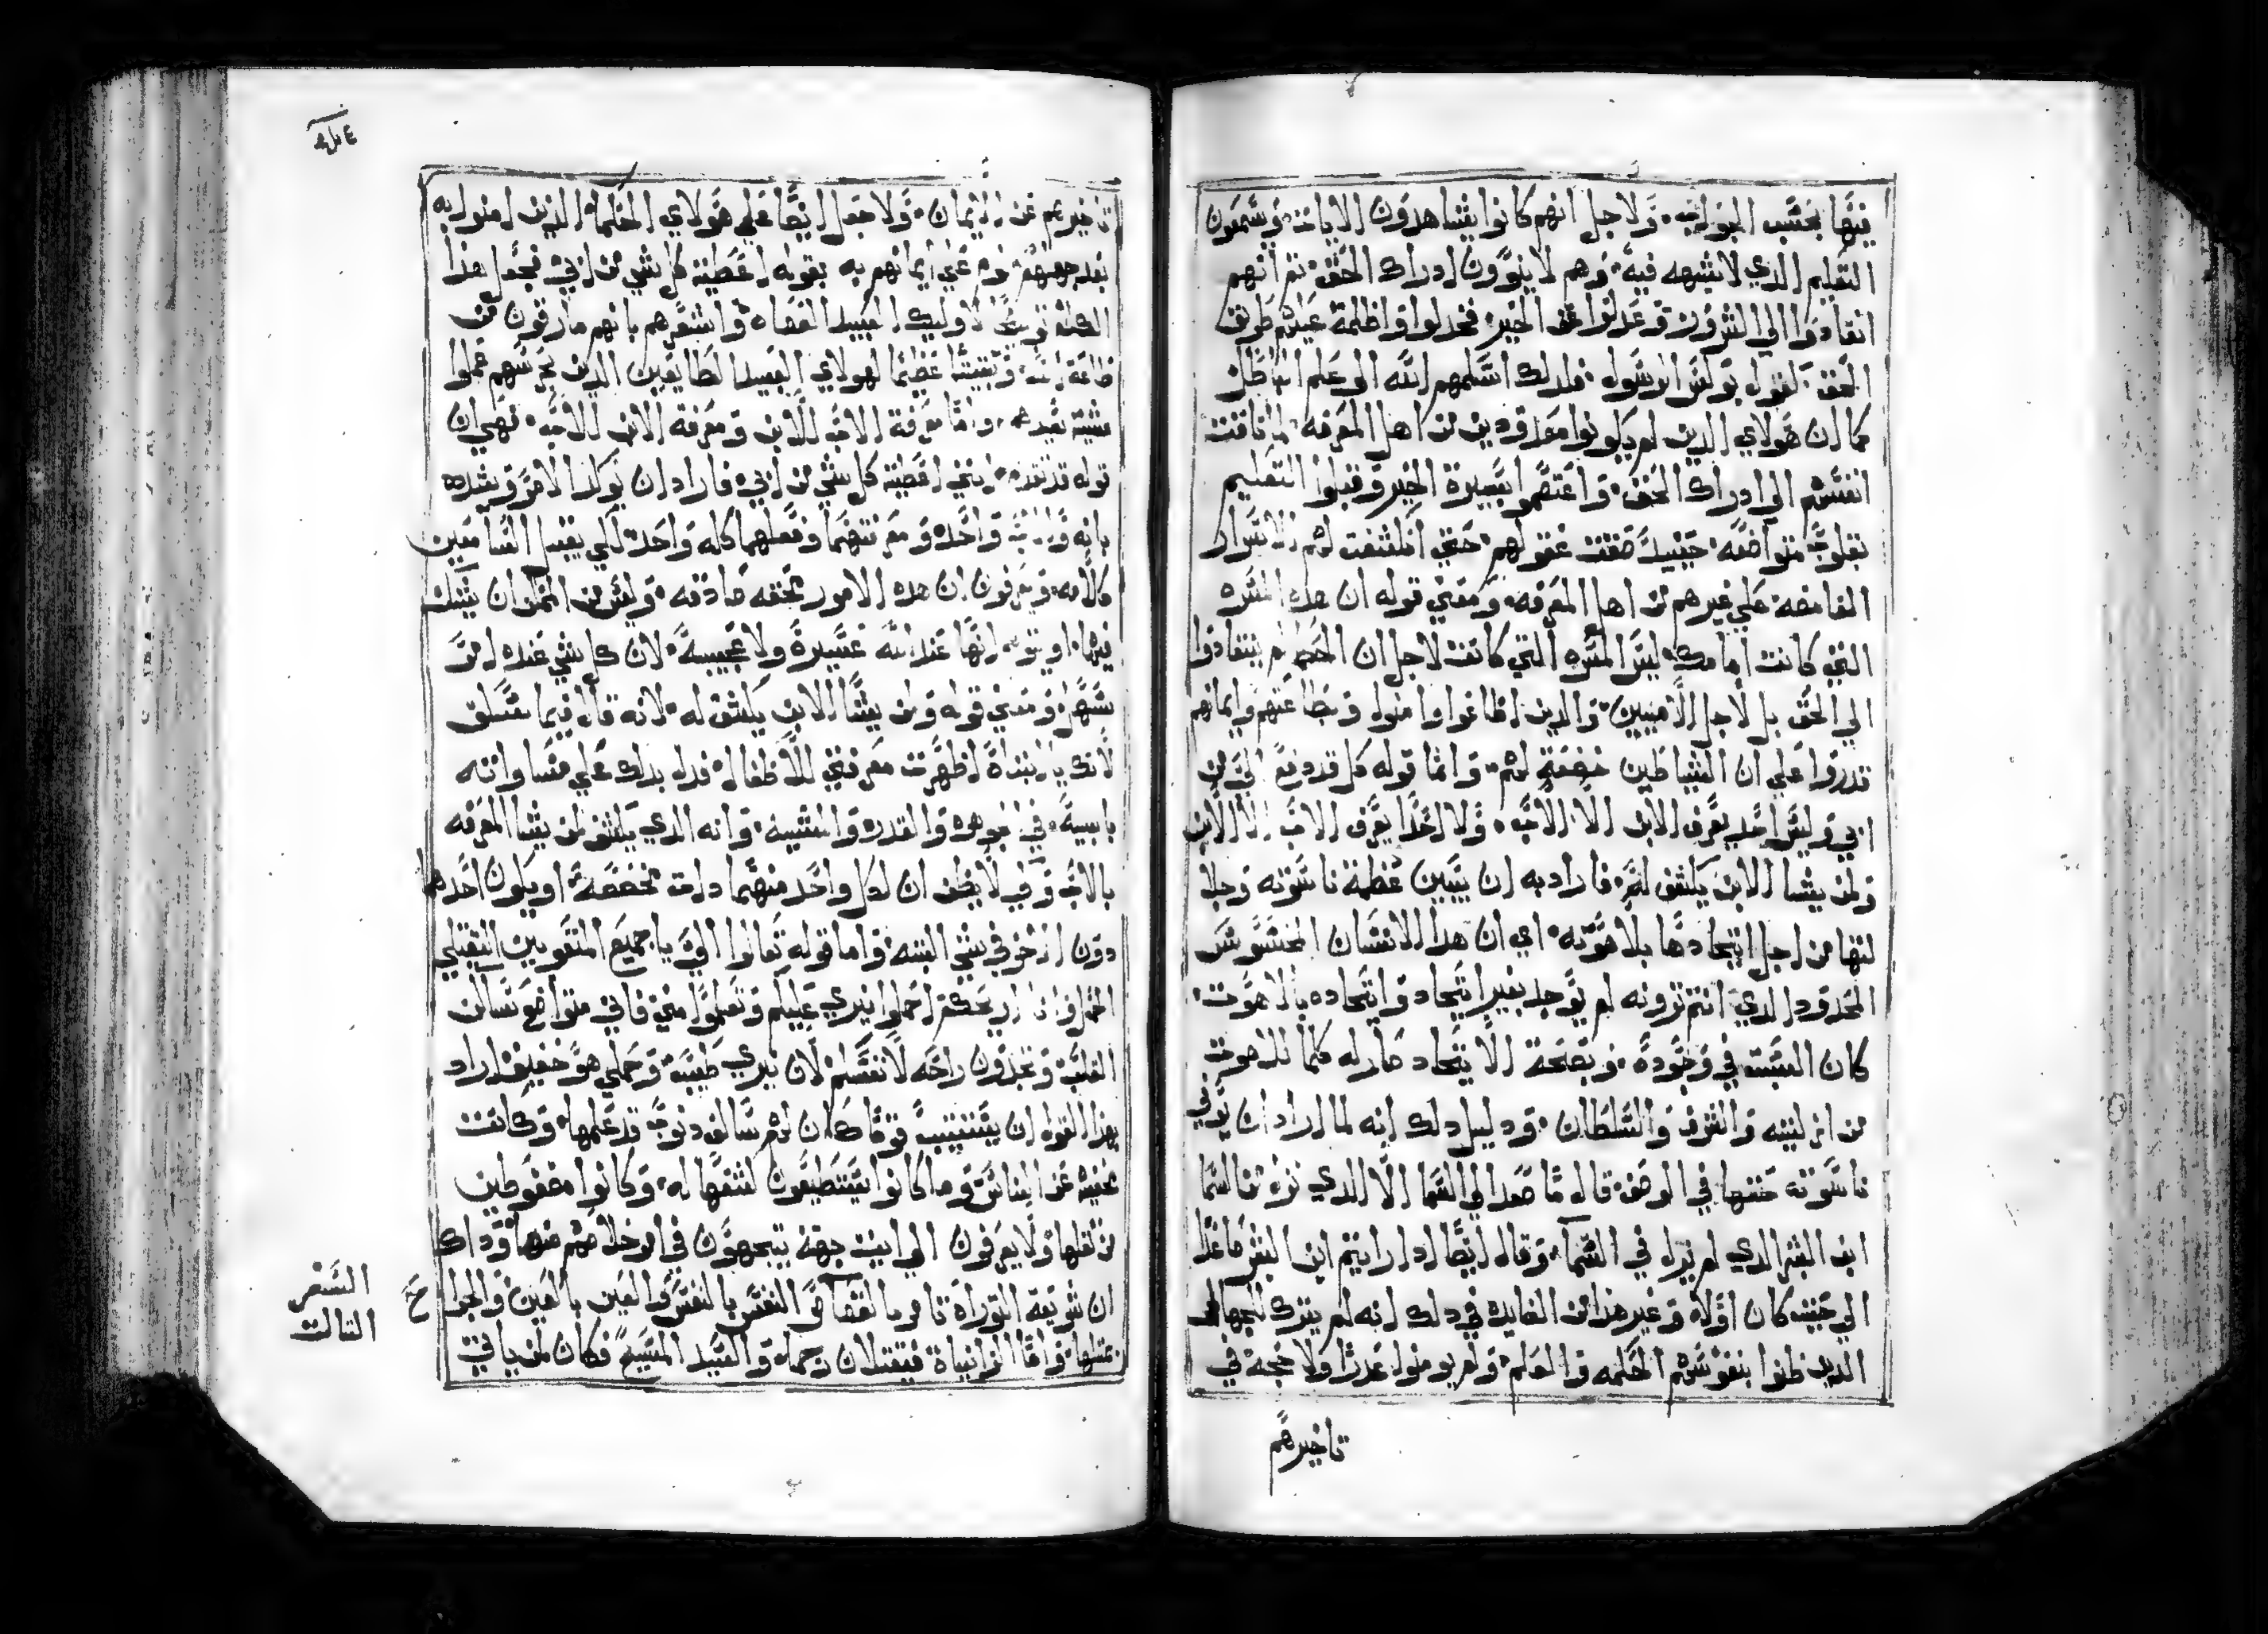 فيها بحسب المواتيه، ولاجل انهم كانوا يشاهدون الايات، ويسمعون
التعليم الدي لا يشبهه فيه، وهم لا ينوون ادراك الحق، تم انهم
انقادوا الي الشرور، وعدلوا عن الخير، فخدلوا واظلمة عليهم طريق
الحق، لقول بولس الرسول، فلدلك اسلمهم الله الي علم الباطل
كما ان هولاي الدين لم يكونوا معدودين من اهل المعرفه، لما تاقت
انفسهم الي ادراك الحق، واعتصموا بسيرة الخير وقبلوا التعليم
بقلوب متواضعه، حينيد صفت عقولهم، حتي انكشفت لهم الاسرار
الغامضه، علي غيرهم من اهل المعرفه، ومعني قوله ان هده المسره
التي كانت امامك، ليس المسره التي كانت لاجل ان الحكما لم ينقادوا
الي الحق بل لاجل الاميين، والدين اطاعوا وامنوا، وبطاعتهم وايمانهم
قدروا علي ان الشياطين خضعة لهم، واما قوله كل قد دفع الي من
ابي وليس احد يعرف الابن الا الاب، ولا احدا يعرف الاب الا الابن
ولمن يشا الابن يكشف له، فاراد به ان يبين عظمة ناسوته وجلا
لتها من اجل اتحادها بلاهوته، اي ان هدا الانسان المحسوس
المحدود الدي انتم ترونه لم يوجد بغير اتحاد، واتحاده بالاهوت،
كان السبب في وجوده، وبصحة الاتحاد صار له كلما للاهوت
من ازلييه والشرف والسلطان، ودليل دلك انه لما اراد ان يوفي
ناسوته حقها في الوصف، قال ما صعد الي السما الا الدي نزل من السما
ابن البشر الدي لم يزل في السما، وقال ايضا ادا رايتم ابن البشر صاعدا
الي حيت كان اولا، وغير هدا من الفايده في دلك انه لم يترك للجهال
الدين ظنوا بنفوسهم الحكمه والعلم، ولم يومنوا عدرا ولا حجه في
تاخيرهم
تاخيرهم عن الايمان، ولا جعل ايضا علي هولاي الحكما الدين امنوا به
بعد جهلهم، علي ايمانهم به بقوله اعطية كل شي من ابي، فجعل هدا
الكلام توبيخا لاوليك العبيد العصاه، واشعرهم بانهم مارقون من
طاعة الله، وتثبيتا عظيما لهولاي العبيد الطايعين الدين بحرسهم عملوا
مشية سيدهم، واما معرفة الاب للابن ومعرفة الابن للاب، فهي ان
قوله قد تقدم، انني اعطية كل شي من ابي، فاراد ان يوكد الامر ويشده
بانه والاب واحد، ومعرفتهما وفعلهما كله واحد، لكي يقبل السامعين
كلامه، ويعرفون ان هده الامور محقه صادقه، وليس من الممكن ان يشك
فيها، او يتوهم انها عند الله عسيرة ولا عجيبة، لان كل شي عنده امر
سهل، ومعني قوله ومن يشا الابن يكشف له، لانه قال فيما سلف
لانك يا ابتاه اظهرت معرفتي للاطفال، فدل بدلك علي مساواته
بابيه، في الجوهر والقدره والمشييه، وانه الدي يكشف لمن يشا المعرفه
بالاب، ولي لا يظن ان لكل واحد منهما دات مخصصه، او يكون احدهما
دون الاخر في شي البته، واما قوله تعالوا الي يا جميع المتعوبين التقيلي
الحمل، وانا اريحكم، احملوا نيري عليكم وتعلموا مني، فاني متواضع ساكن
القلب، وتجدون راحه لانفسكم، لان نيري طيب، وحملي هو خفيف، اراد
بهدا القول ان يستتيب قوما كان لهم سالف دنوب قد عملوها، وكانت
مخفيه عن الناس، وما كانوا يستطيعون كشفها له، وكانوا مضغوطين
من تقلها ولا يعرفون الي ايت جهة يتجهون في امر خلاصهم منها، وداك
ان شريعة التوراة تامر بالقصاص، النفس بالنفس، والعين بالعين، والجراح
بمتلها، واما الزانياة فيقتلان رجما، والعبد المسبي، فكان لمن ياتي
السفر
التالت